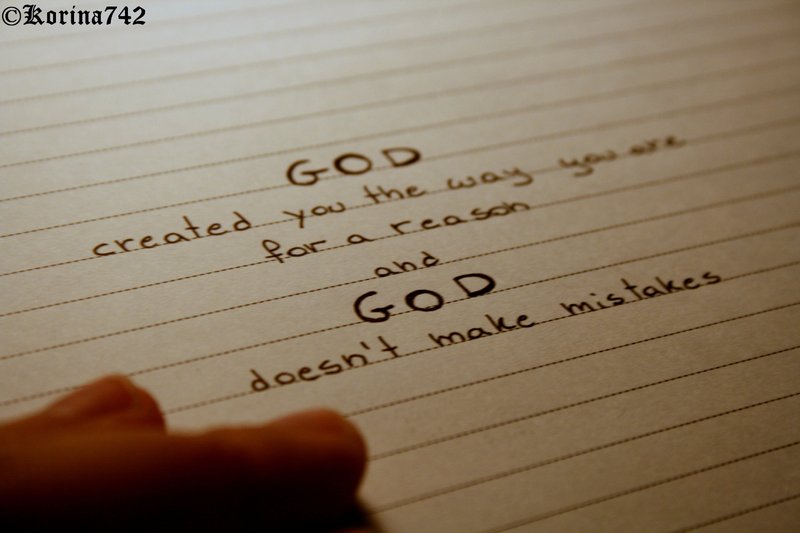 ©Korina742
GOD
created you the way you are
for a reason
and
GOD
doesn't make mistakes